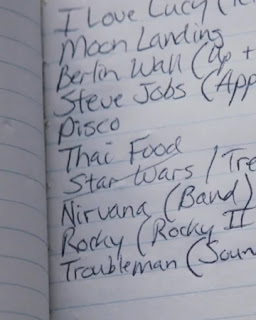 I Love Lucy (
Moon Landing
Berlin Wall (Up +
Steve Jobs (App
Disco
Thai Food
Star Wars / Tre
Nirvana (Band)
Rocky (Rocky II
Troubleman (Soun